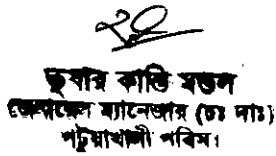 তুষার কান্তি মন্ডল
জেনারেল ম্যানেজার (চঃ দাঃ)
পটুয়াখালী পবিস।